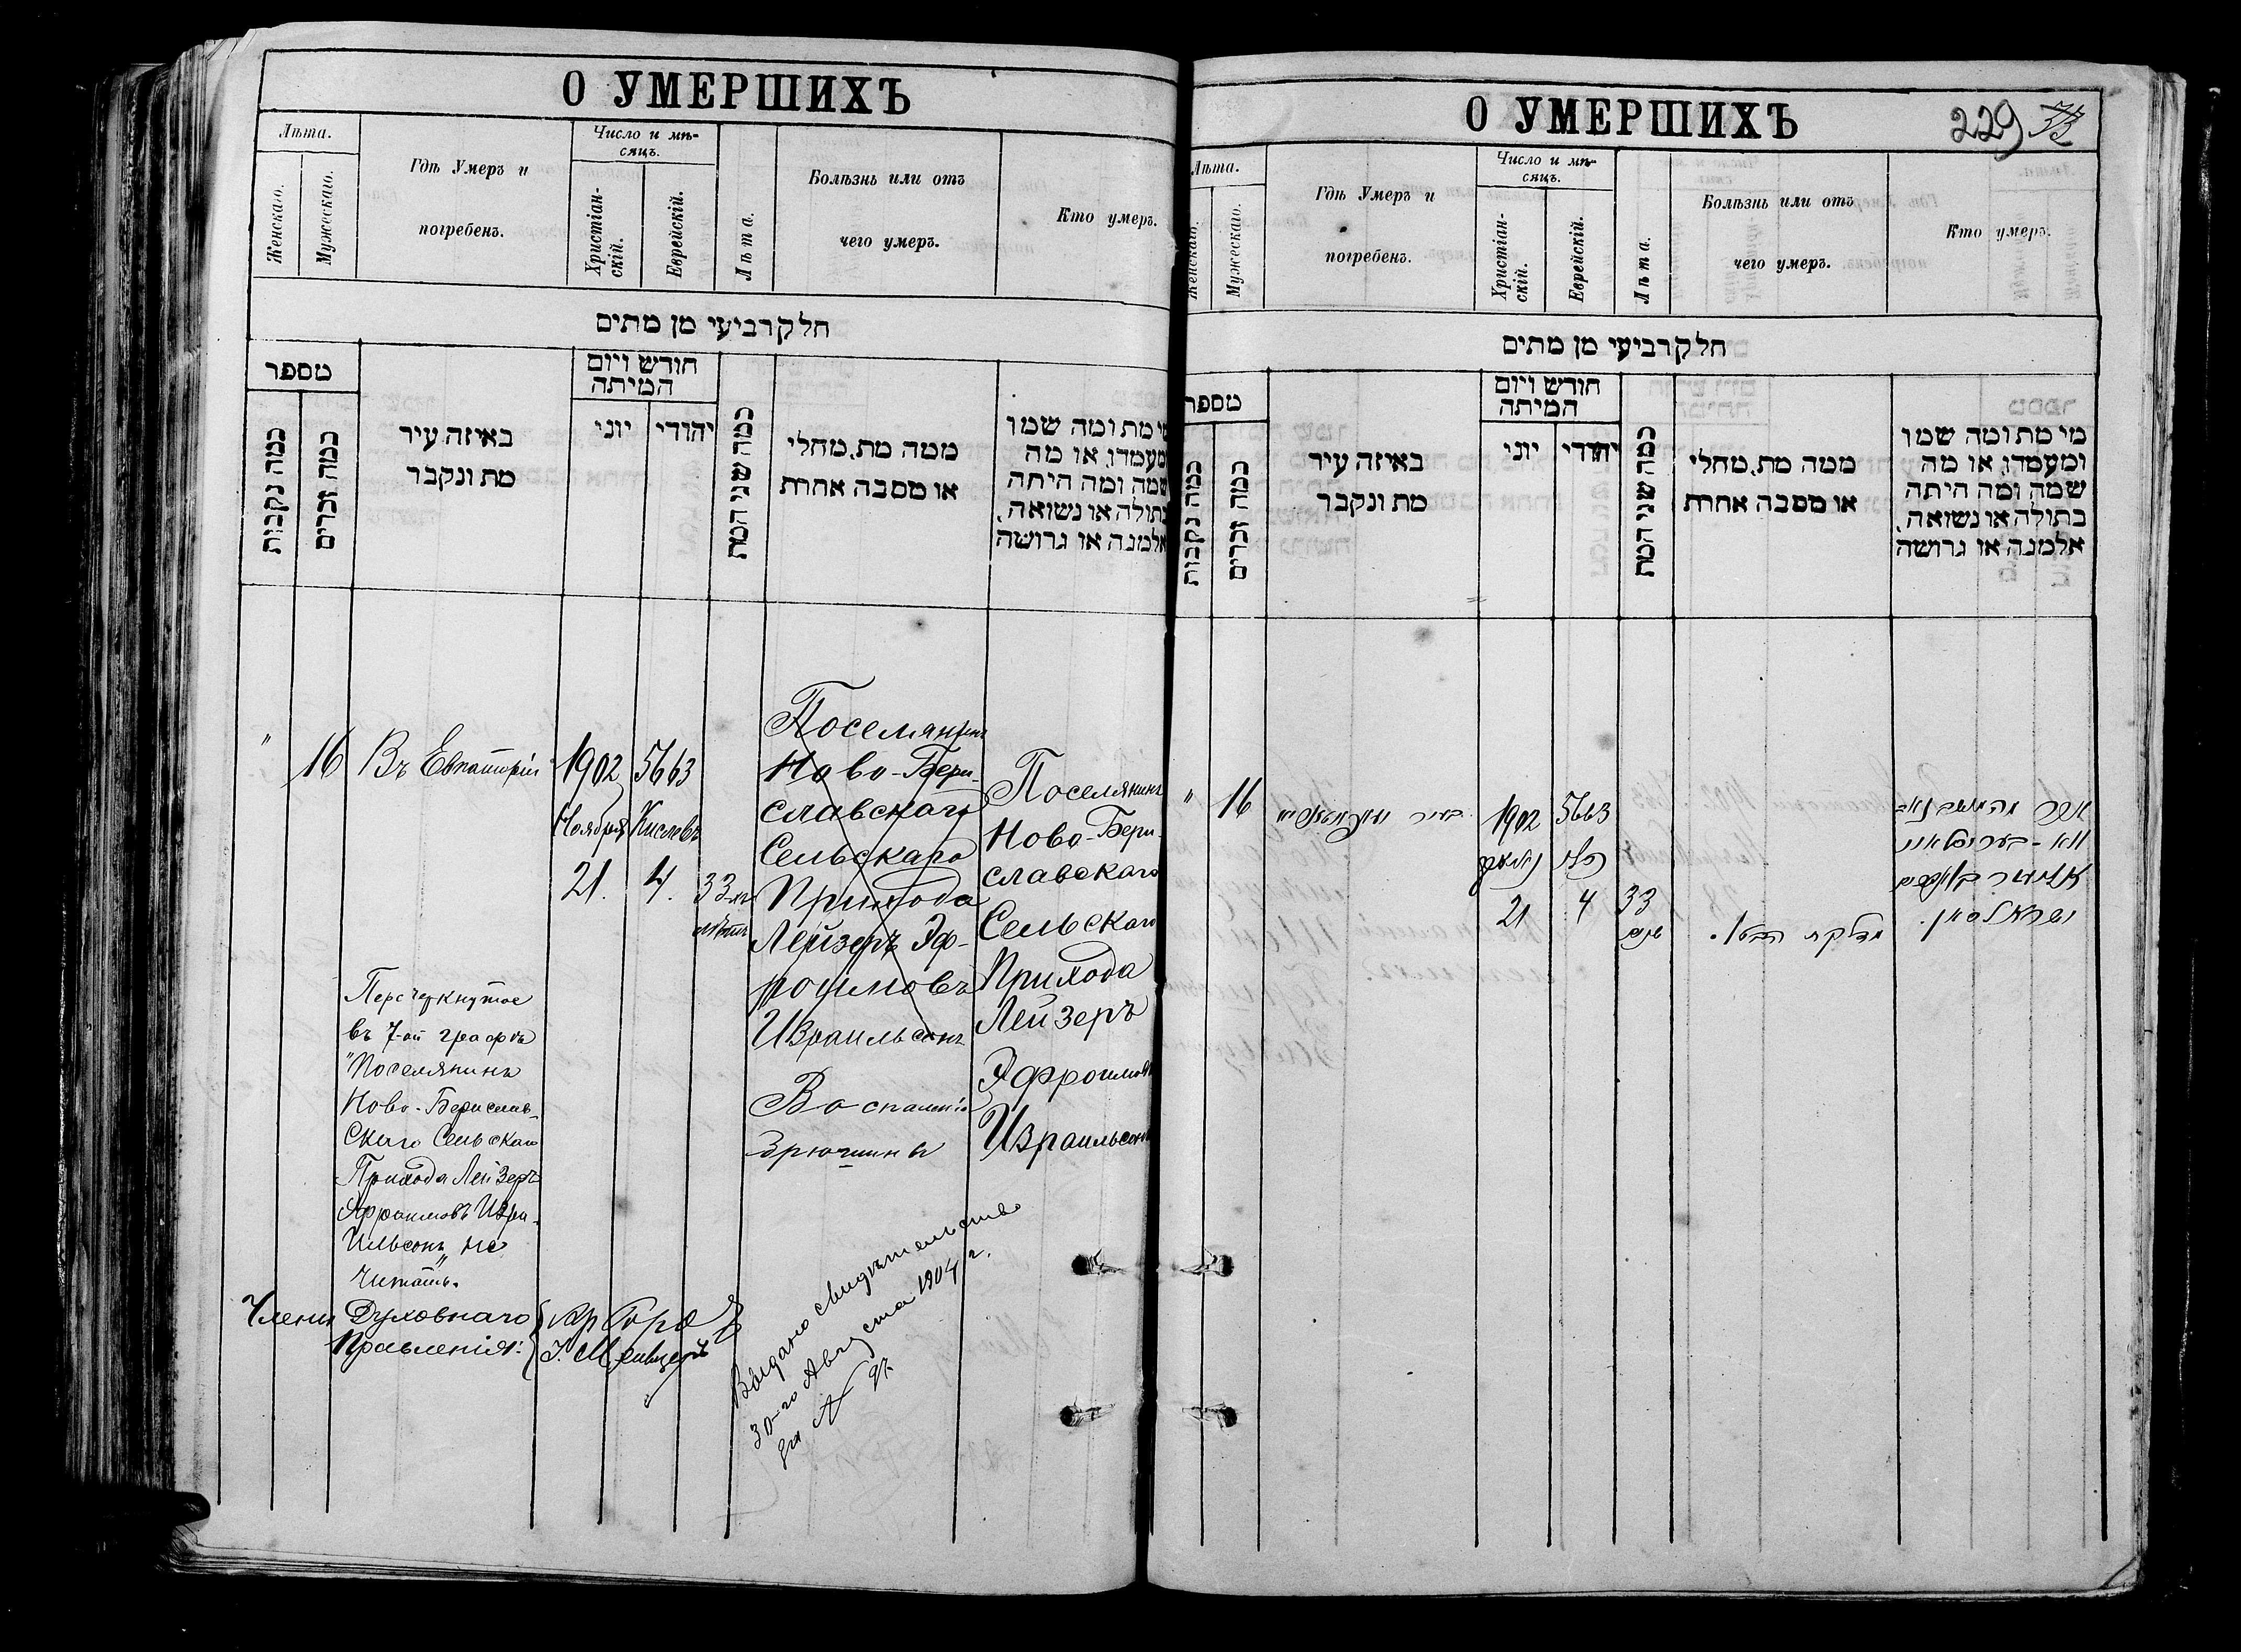 О УМЕРШИХЪ
Лѣта.
Женскаго.
Мужескаго.
Гдѣ Умеръ и
погребенъ.
Число и мѣ-
сяцъ.
Христіан-
скій.
Еврейскій.
Лѣта.
Болѣзнь или отъ
чего умеръ.
Кто умеръ.
חלק רביעי מן מתים
מספר
כמה נקבות
כמה זכרים
באיזה עיר
מת ונקבר
חודש ויום
המיתה
יוני
יהודי
כמה שני המת
ממה מת, מחלי
או מסבה אחרת
מי מת ומה שמו
ומעמדו, או מה
שמה ומה היתה
בתולה או נשואה,
אלמנה או גרושה
" 16 Въ Евпаторіи
1902 5663
Ноября Кислевъ
21. 4.
33-хъ
лѣтъ
Поселянинъ
Ново-Бери-
славскаго
Сельскаго
Прихода
Лейзеръ Эф-
роимовъ
Израильсонъ
Воспаленіе
брюшины
Поселянинъ
Ново-Бери-
славскаго
Сельскаго
Прихода
Лейзеръ
Эфроимовъ
Израильсонъ
Перечеркнутое
въ 7-ой графѣ
"Поселянинъ
Ново-Берислав-
скаго Сельскаго
Прихода Лейзеръ
Эфроимовъ Изра-
ильсонъ" не
читать.
Члены Духовнаго
Правленія:
Выдано свидѣтельство
30-го Августа 1904 г.
О УМЕРШИХЪ
229 33
Лѣта.
Женскаго.
Мужескаго.
Гдѣ Умеръ и
погребенъ.
Число и мѣ-
сяцъ.
Христіан-
скій.
Еврейскій.
Лѣта.
Болѣзнь или отъ
чего умеръ.
Кто умеръ.
חלק רביעי מן מתים
מספר
כמה נקבות
כמה זכרים
באיזה עיר
מת ונקבר
חודש ויום
המיתה
יוני
יהודי
כמה שני המת
ממה מת, מחלי
או מסבה אחרת
מי מת ומה שמו
ומעמדו, או מה
שמה ומה היתה
בתולה או נשואה,
אלמנה או גרושה
" 16
בעיר
1902 5663
21 4
33
שנים
מדלקת הבטן.